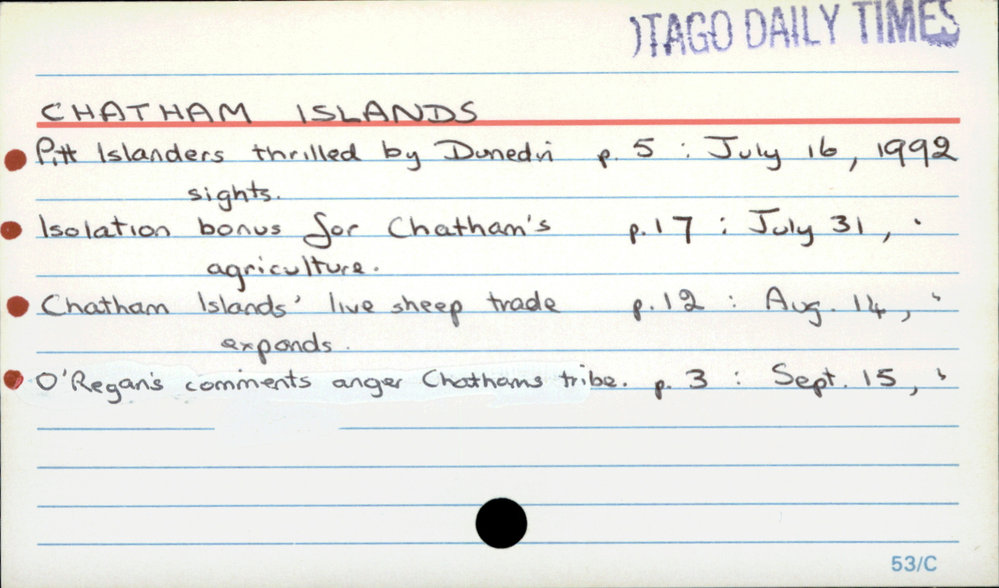 OTAGO DAILY TIMES
CHATHAM ISLANDS
Pitt Islanders thrilled by Dunedin p. 5 : July 16, 1992
sights.
Isolation bonus for Chatham's p.17 : July 31, "
agriculture.
Chatham Islands' live sheep trade p.12 : Aug. 14, "
expands.
O'Regan's comments anger Chathams tribe. p. 3 : Sept. 15, "
53/C